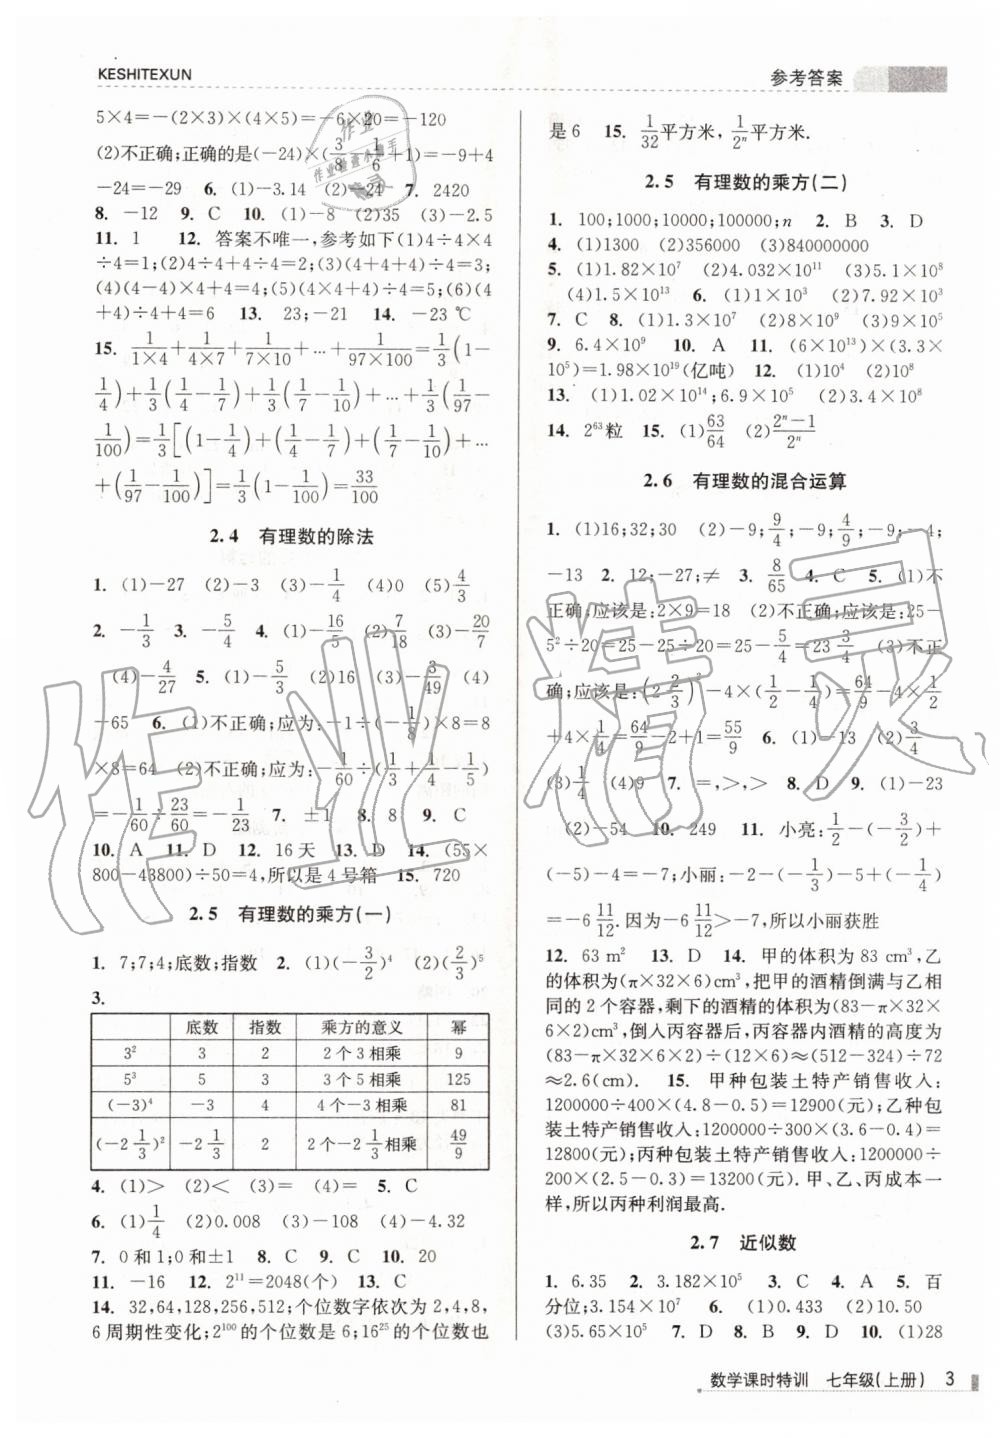 KESHITEXUN
参考答案
5×4=-(2×3)×(4×5)=-6×20=-120
(2)不正确;正确的是(-24)×(3/8-1/6+1)=-9+4
-24=-29 6. (1)-3.14 (2)-24 7. 2420
8. -12 9. C 10. (1)-8 (2)35 (3)-2.5
11. 1 12. 答案不唯一,参考如下(1)4÷4×4
÷4=1;(2)4÷4+4÷4=2;(3)(4+4+4)÷4=3;
(4)(4-4)×4+4=4;(5)(4×4+4)÷4=5;(6)(4
+4)÷4+4=6 13. 23;-21 14. -23 ℃
15. 1/(1×4)+1/(4×7)+1/(7×10)+…+1/(97×100)=1/3(1-
1/4)+1/3(1/4-1/7)+1/3(1/7-1/10)+…+1/3(1/97-
1/100)=1/3[(1-1/4)+(1/4-1/7)+(1/7-1/10)+…
+(1/97-1/100)]=1/3(1-1/100)=33/100
2.4 有理数的除法
1. (1)-27 (2)-3 (3)-1/4 (4)0 (5)4/3
2. -1/3 3. -5/4 4. (1)-16/5 (2)7/18 (3)-20/7
(4)-4/27 5. (1)-5/3 (2)16 (3)-3/49 (4)
-65 6. (1)不正确;应为:-1÷(-1/8)×8=8
×8=64 (2)不正确;应为:-1/60÷(1/3+1/4-1/5)
=-1/60÷23/60=-1/23 7. ±1 8. 8 9. C
10. A 11. D 12. 16天 13. D 14. (55×
800-43800)÷50=4,所以是4号箱 15. 720
2.5 有理数的乘方(一)
1. 7;7;4;底数;指数 2. (1)(-3/2)⁴ (2)(2/3)⁵
3.
底数 指数 乘方的意义 幂
3² 3 2 2个3相乘 9
5³ 5 3 3个5相乘 125
(-3)⁴ -3 4 4个-3相乘 81
(-2 1/3)² -2 1/3 2 2个-2 1/3相乘 49/9
4. (1)> (2)< (3)= (4)= 5. C
6. (1)1/4 (2)0.008 (3)-108 (4)-4.32
7. 0和1;0和±1 8. C 9. C 10. 20
11. -16 12. 2¹¹=2048(个) 13. C
14. 32,64,128,256,512;个位数字依次为2,4,8,
6周期性变化;2¹⁰⁰的个位数是6;16²⁵的个位数也
是6 15. 1/32平方米,1/2ⁿ平方米.
2.5 有理数的乘方(二)
1. 100;1000;10000;100000;n 2. B 3. D
4. (1)1300 (2)356000 (3)840000000
5. (1)1.82×10⁷ (2)4.032×10¹¹ (3)5.1×10⁸
(4)1.5×10¹³ 6. (1)1×10³ (2)7.92×10³
7. C 8. (1)1.3×10⁷ (2)8×10⁹ (3)9×10⁵
9. 6.4×10⁹ 10. A 11. (6×10¹³)×(3.3×
10⁵)=1.98×10¹⁹(亿吨) 12. (1)10⁴ (2)10⁸
13. (1)1.02×10¹⁴;6.9×10⁵ (2)3.4×10⁸
14. 2⁶³粒 15. (1)63/64 (2)(2ⁿ-1)/2ⁿ
2.6 有理数的混合运算
1. (1)16;32;30 (2)-9;9/4;-9;4/9;-9;-4;
-13 2. 12;-27;≠ 3. 8/65 4. C 5. (1)不
正确;应该是:2×9=18 (2)不正确;应该是:25-
5²÷20=25-25÷20=25-5/4=23 3/4 (3)不正
确;应该是:(2 2/3)²-4×(1/2-1/4)=64/9-4×1/2
+4×1/4=64/9-2+1=55/9 6. (1)-13 (2)3/4
(3)1/4 (4)9 7. =,>,> 8. D 9. (1)-23
(2)-54 10. 249 11. 小亮:1/2-(-3/2)+
(-5)-4=-7;小丽:-2-(-1/3)-5+(-1/4)
=-6 11/12.因为-6 11/12>-7,所以小丽获胜
12. 63 m² 13. D 14. 甲的体积为83 cm³,乙
的体积为(π×32×6)cm³,把甲的酒精倒满与乙相
同的2个容器,剩下的酒精的体积为(83-π×32×
6×2)cm³,倒入丙容器后,丙容器内酒精的高度为
(83-π×32×6×2)÷(12×6)≈(512-324)÷72
≈2.6(cm). 15. 甲种包装土特产销售收入:
1200000÷400×(4.8-0.5)=12900(元);乙种包
装土特产销售收入:1200000÷300×(3.6-0.4)=
12800(元);丙种包装土特产销售收入:1200000÷
200×(2.5-0.3)=13200(元).甲、乙、丙成本一
样,所以丙种利润最高.
2.7 近似数
1. 6.35 2. 3.182×10⁵ 3. C 4. A 5. 百
分位;3.154×10⁷ 6. (1)0.433 (2)10.50
(3)5.65×10⁵ 7. D 8. B 9. D 10. (1)28
数学课时特训 七年级(上册) 3
作业精灵